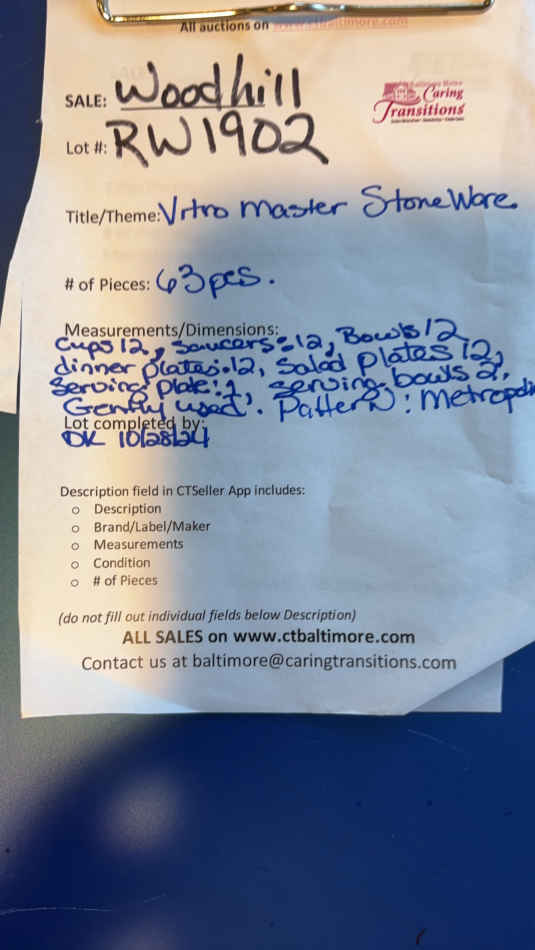 All auctions on www.ctbaltimore.com
SALE: Woodhill
Caring
Transitions
Lot #: RW1902
Title/Theme: Vrtro Master StoneWare.
# of Pieces: 63pcs.
Measurements/Dimensions:
Cups 12, Saucers:12, Bowls 12
dinner plates:12, Salad Plates 12,
Serving Plate: 1, serving bowls 2.
Gently used. Pattern: Metropoli
Lot completed by:
DK 10/28/24
Description field in CTSeller App includes:
o Description
o Brand/Label/Maker
o Measurements
o Condition
o # of Pieces
(do not fill out individual fields below Description)
ALL SALES on www.ctbaltimore.com
Contact us at baltimore@caringtransitions.com